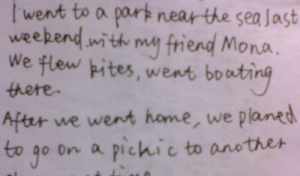 I went to a park near the sea last
weekend with my friend Mona.
We flew kites, went boating
there.
After we went home, we planed
to go on a pichic to another